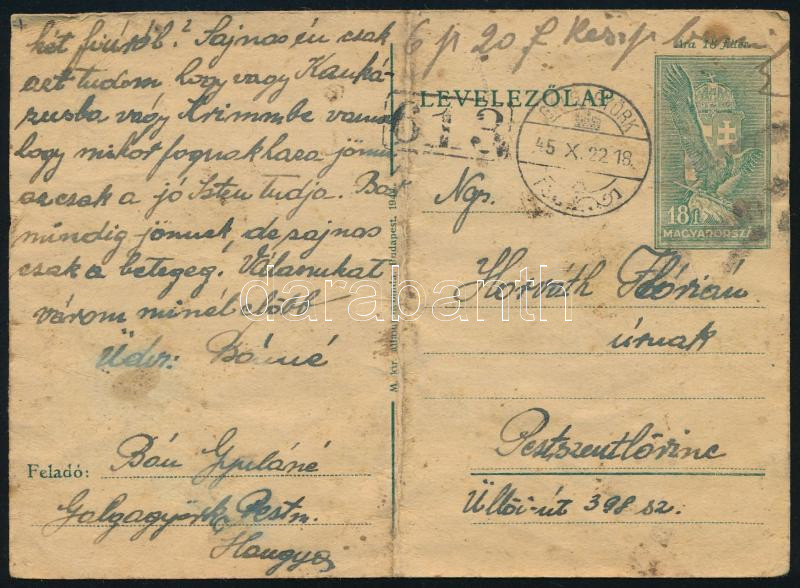 két fiúról? Sajnos én csak
azt tudom hogy vagy Kauká-
zusba vagy Krimmbe vannak
hogy mikor fognak haza jönni
az csak a jó Isten tudja.
mindig jönnek, de sajnos
csak a beteget! Válaszukat
várom minél előbb
Üdv: Bánné
Feladó: Bán Gyuláné
Galgagyörk, Pestm.
Hangya
6 p 20 f készp
Ára 18 fillér
LEVELEZŐLAP
GALGAGYÖRK
45 X. 22 18
18 f
MAGYARORSZÁG
Ngs.
Horváth Flórián
úrnak
Pestszentlőrinc
Üllői-út 398 sz.
M. kir. Állami Budapest. 194
darabanth